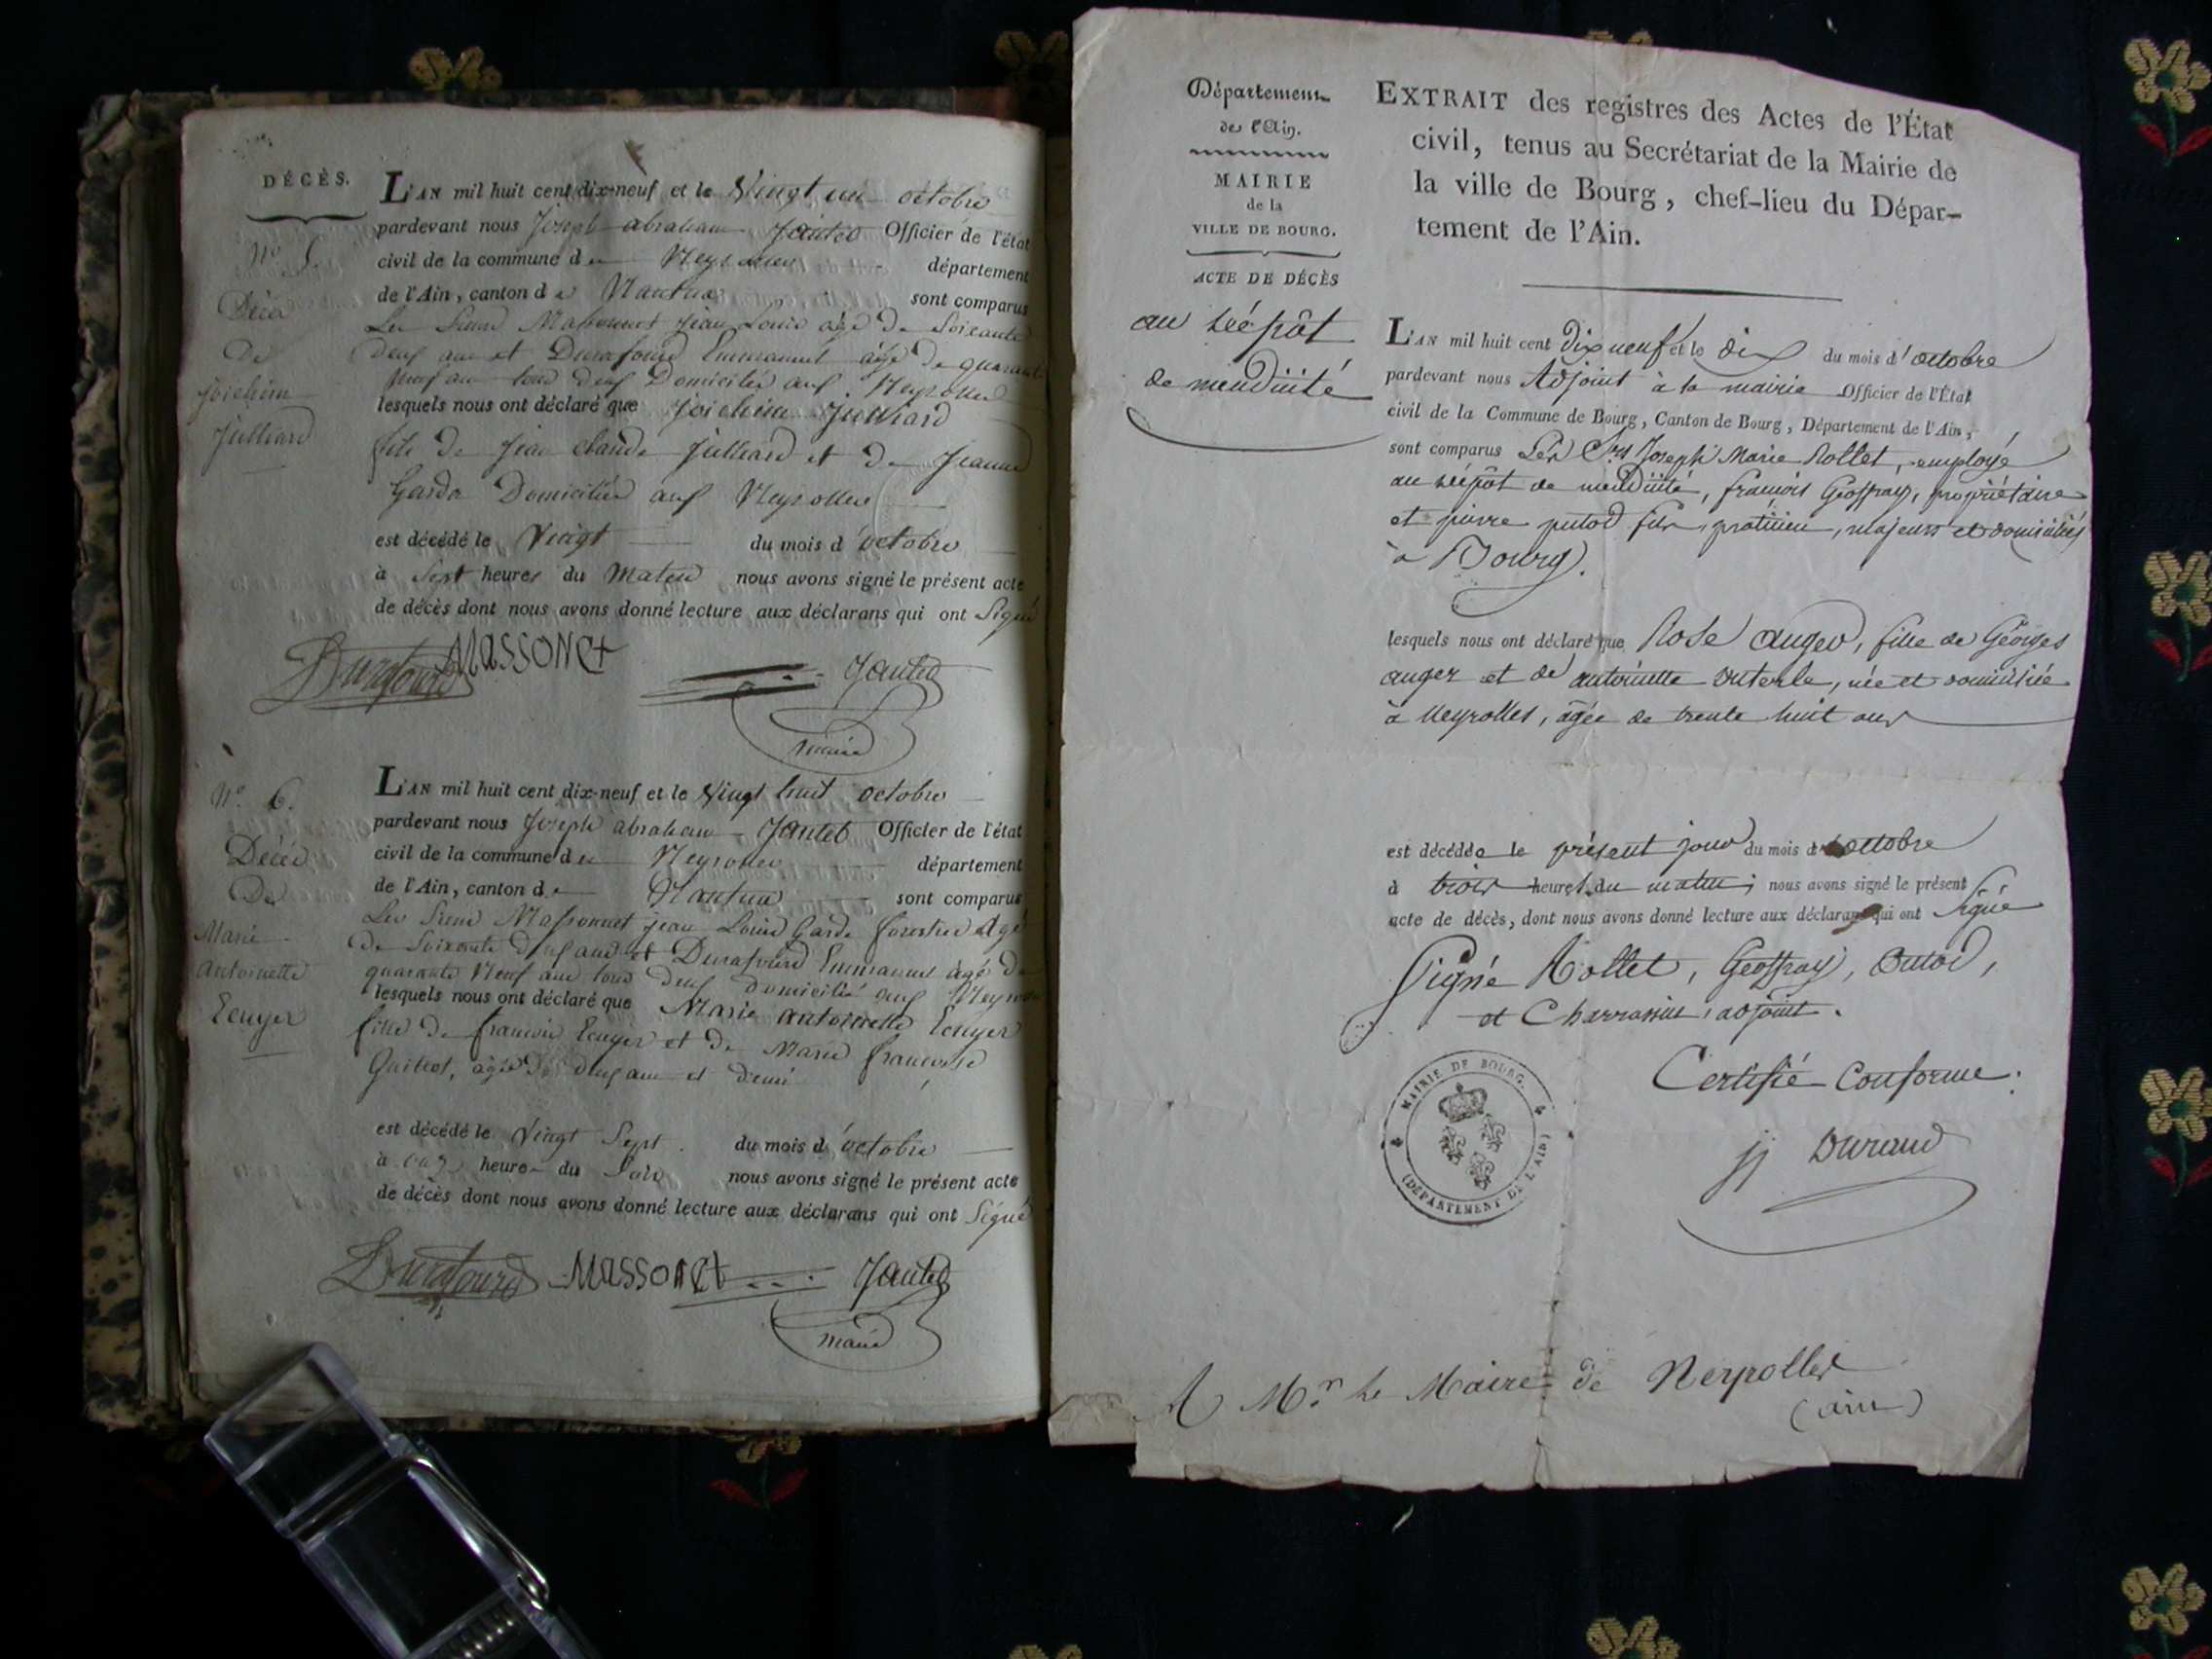 DÉCÈS.
L'AN mil huit cent dix-neuf et le Vingt un octobre
pardevant nous Joseph abraham Jantet Officier de l'état
civil de la commune de Neyrolles département
de l'Ain, canton de Nantua sont comparus
Les Sieurs Massonnet Jean Louis agé de Soixante
deux ans et Durafourd Emmanuel agé de quarante
neuf ans tous deux Domiciliés aux Neyrolles
lesquels nous ont déclaré que Joichim Julliard
fils de Jean Claude Julliard et de Jeanne
Garda Domiciliés aux Neyrolles
est décédé le Vingt du mois d'octobre
à Sept heures du Matin nous avons signé le présent acte
de décès dont nous avons donné lecture aux déclarans qui ont Signé
N.° 5.
Décès
De
Joichim
Julliard
Durafourd MASSONet Jantet
maire
L'AN mil huit cent dix-neuf et le Vingt huit octobre
pardevant nous Joseph abraham Jantet Officier de l'état
civil de la commune de Neyrolles département
de l'Ain, canton de Nantua sont comparus
Les Sieurs Massonnet Jean Louis Garde forestier Agé
de Soixante deux ans et Durafourd Emmanuel agé de
quarante Neuf ans tous deux domicilié aux Neyrolles
lesquels nous ont déclaré que Marie antoinette Ecuyer
fille de francois Ecuyer et de Marie francoise
agée de deux ans et demi
est décédé le Vingt Sept du mois d'octobre
à onze heure du Soir nous avons signé le présent acte
de décès dont nous avons donné lecture aux déclarans qui ont Signé
N.° 6.
Décès
De
Marie
Antoinette
Ecuyer
Durafourd MASSONet Jantet
maire
Département
de l'Ain.
MAIRIE
de la
VILLE DE BOURG.
ACTE DE DÉCÈS
au dépôt
de mendicité
EXTRAIT des registres des Actes de l'État
civil, tenus au Secrétariat de la Mairie de
la ville de Bourg, chef-lieu du Dépar-
tement de l'Ain.
L'AN mil huit cent dix neuf et le dix du mois d'octobre
pardevant nous Adjoint à la mairie Officier de l'État
civil de la Commune de Bourg, Canton de Bourg, Département de l'Ain,
sont comparus Les Srs Joseph Marie Rollet, employé
au dépôt de mendicité, francois Geoffray, propriétaire
et pierre putod fils, praticien, majeurs et domiciliés
à Bourg.
lesquels nous ont déclaré que Rose auger, fille de Georges
auger et de antoinette, née et domiciliée
à Neyrolles, âgée de trente huit ans
est décédée le présent jour du mois d'octobre
à trois heures du matin; nous avons signé le présent
acte de décès, dont nous avons donné lecture aux déclarans qui ont Signé
Signé Rollet, Geoffray, Putod,
et Charrassin, adjoint.
MAIRIE DE BOURG.
(DÉPARTEMENT DE L'AIN)
Certifié Conforme:
Durand
A Mr. le Maire de Neyrolles
(ain)